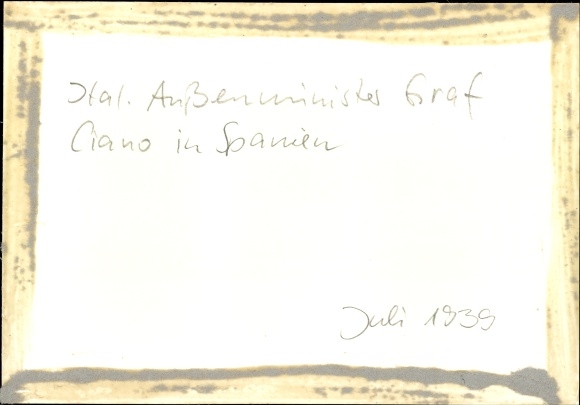 Ital. Außenminister Graf
Ciano in Spanien
Juli 1939